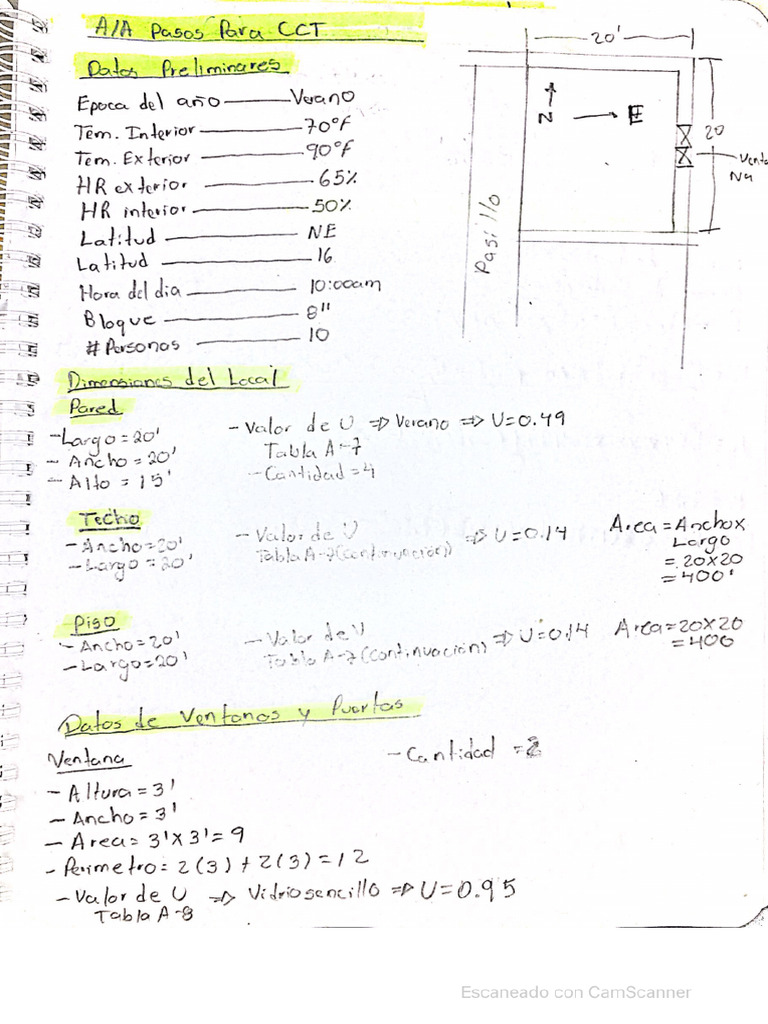 A/A Pasos Para CCT
Datos Preliminares
Epoca del año — Verano
Tem. Interior — 70°F
Tem. Exterior — 90°F
HR exterior — 65%
HR interior — 50%
Latitud — NE
Latitud — 16
Hora del dia — 10:00am
Bloque — 8"
# Personas — 10
20'
N
E
20
Venta
Na
Pasillo
Dimensiones del Local
Pared
- Largo = 20'
- Ancho = 20'
- Alto = 15'
- Valor de U ⇒ Verano ⇒ U = 0.49
Tabla A-7
- Cantidad = 4
Techo
- Ancho = 20'
- Largo = 20'
- Valor de U
Tabla A-7 (continuación) ⇒ U = 0.14
Area = Ancho x
Largo
= 20x20
= 400'
Piso
- Ancho = 20'
- Largo = 20'
- Valor de U
Tabla A-7 (continuación) ⇒ U = 0.14
Area = 20x20
= 400
Datos de Ventanas y Puertas
Ventana
- Cantidad = 2
- Altura = 3'
- Ancho = 3'
- Area = 3' x 3' = 9
- Perimetro: 2(3) + 2(3) = 12
- Valor de U ⇒ Vidrio sencillo ⇒ U = 0.95
Tabla A-8
Escaneado con CamScanner